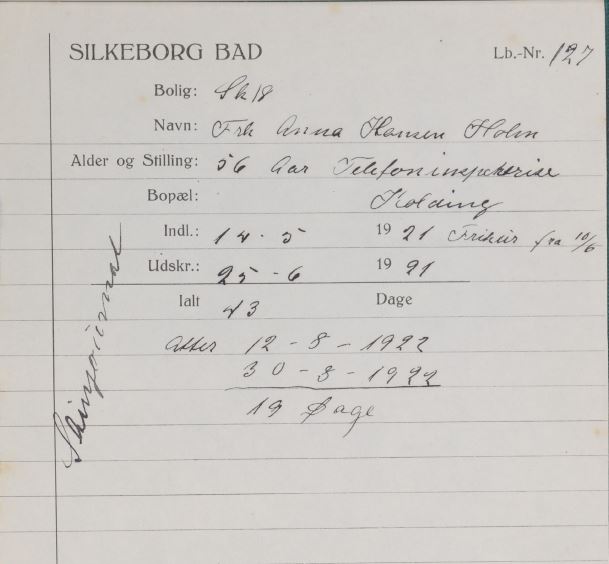 SILKEBORG BAD Lb.-Nr. 127
Bolig: Sk 18
Navn: Frk Anna Hansen Holm
Alder og Stilling: 56 Aar Telefoninspektrise
Bopæl: Kolding
Indl.: 14 - 5 1921 Frikur fra 10/6
Udskr.: 25 - 6 1921
Ialt 43 Dage
atter 12 - 8 - 1922
30 - 8 - 1922
19 Dage